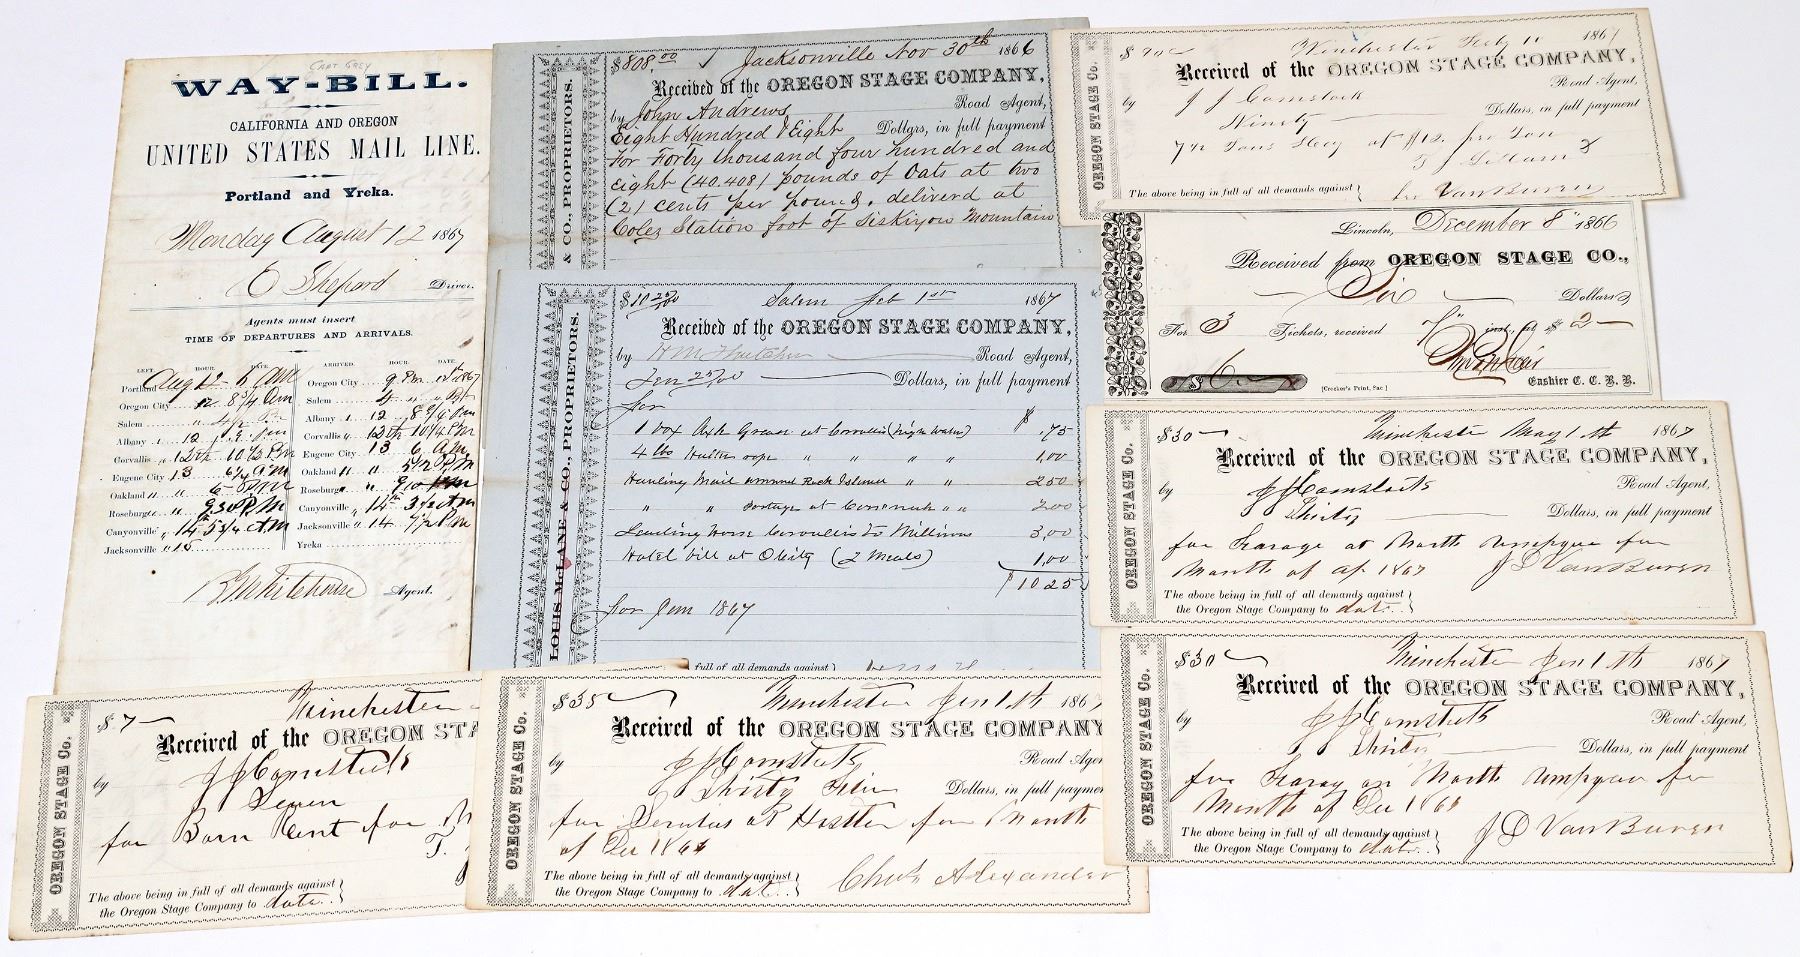 Capt Grey
WAY-BILL.
CALIFORNIA AND OREGON
UNITED STATES MAIL LINE.
Portland and Yreka.
Monday August 12 1867
C Shepard Driver.
Agents must insert
TIME OF DEPARTURES AND ARRIVALS.
LEFT HOUR. DATE.
Portland Aug 12 6 am
Oregon City 12 8 3/4 Am
Salem
Albany 12
Corvallis 12th 10 1/2 P.M
Eugene City 13 6 1/4 a M
Oakland 6 P.M
Roseburg 9 30 P.M
Canyonville 14th 5 3/4 A.M
Jacksonville 15
ARRIVED. HOUR. DATE.
Oregon City 9
Salem 4
Albany 12
Corvallis 12th 10 1/4 P.M
Eugene City 13 6 a.M
Oakland 5 1/2 P.M
Roseburg
Canyonville 14th 3 1/2 A m
Jacksonville 14
Yreka
B. Whitehouse Agent.
& CO., PROPRIETORS.
$808.00 Jacksonville Nov 30th 1866
Received of the OREGON STAGE COMPANY,
by John Andrews Road Agent,
Eight Hundred & Eight Dollars, in full payment
For Forty thousand four hundred and
eight (40.408) pounds of Oats at two
(2) cents per pound, delivered at
Coles Station foot of Siskiyou Mountain
LOUIS McLANE & CO., PROPRIETORS.
$10 25/00 Salem Feb 1st 1867
Received of the OREGON STAGE COMPANY,
by Road Agent,
Ten 25/00 Dollars, in full payment
for $
1 box Axle Grease at Corvallis (High Water) .75
4 lbs rope " " " " 1,00
Hauling Mail around Rock Island " " 2 50
" " Portage at " " 2 00
Corvallis to 3,00
Hotel bill at O City (2 Meals) 1,00
$10 25
for Jan 1867
full of all demands against
OREGON STAGE Co.
$90 Winchester Feb 10 1867
Received of the OREGON STAGE COMPANY,
by J J Comstock Road Agent,
Ninety Dollars, in full payment
7 1/2 Tons Hay at $12. per Ton
The above being in full of all demands against
per Van Buren
Lincoln, December 8" 1866
Received from OREGON STAGE CO.,
Six Dollars
For 3 Tickets, received $2
$6
[Crocker's Print, Sac]
Cashier C. C. R. R.
OREGON STAGE Co.
$30 Winchester May 10th 1867
Received of the OREGON STAGE COMPANY,
by J J Comstock Road Agent,
Thirty Dollars, in full payment
for at North Umpqua for
Month of Ap 1867 J D Van Buren
The above being in full of all demands against
the Oregon Stage Company to date.
OREGON STAGE Co.
$30 Winchester Jan 10th 1867
Received of the OREGON STAGE COMPANY,
by J J Comstock Road Agent,
Thirty Dollars, in full payment
for on North Umpqua for
Month of Dec 1866 J D Van Buren
The above being in full of all demands against
the Oregon Stage Company to date.
OREGON STAGE Co.
$7 Winchester
Received of the OREGON STA
by J J Comstock
Seven
for Barn Rent for
T.
The above being in full of all demands against
the Oregon Stage Company to date.
OREGON STAGE Co.
$35 Winchester Jan 10th 1867
Received of the OREGON STAGE COMPANY
by J J Comstock Road Agen
Thirty Five Dollars, in full payme
for Services as Hostler for Month
of Dec 1866
The above being in full of all demands against
the Oregon Stage Company to date. Chas Alexander